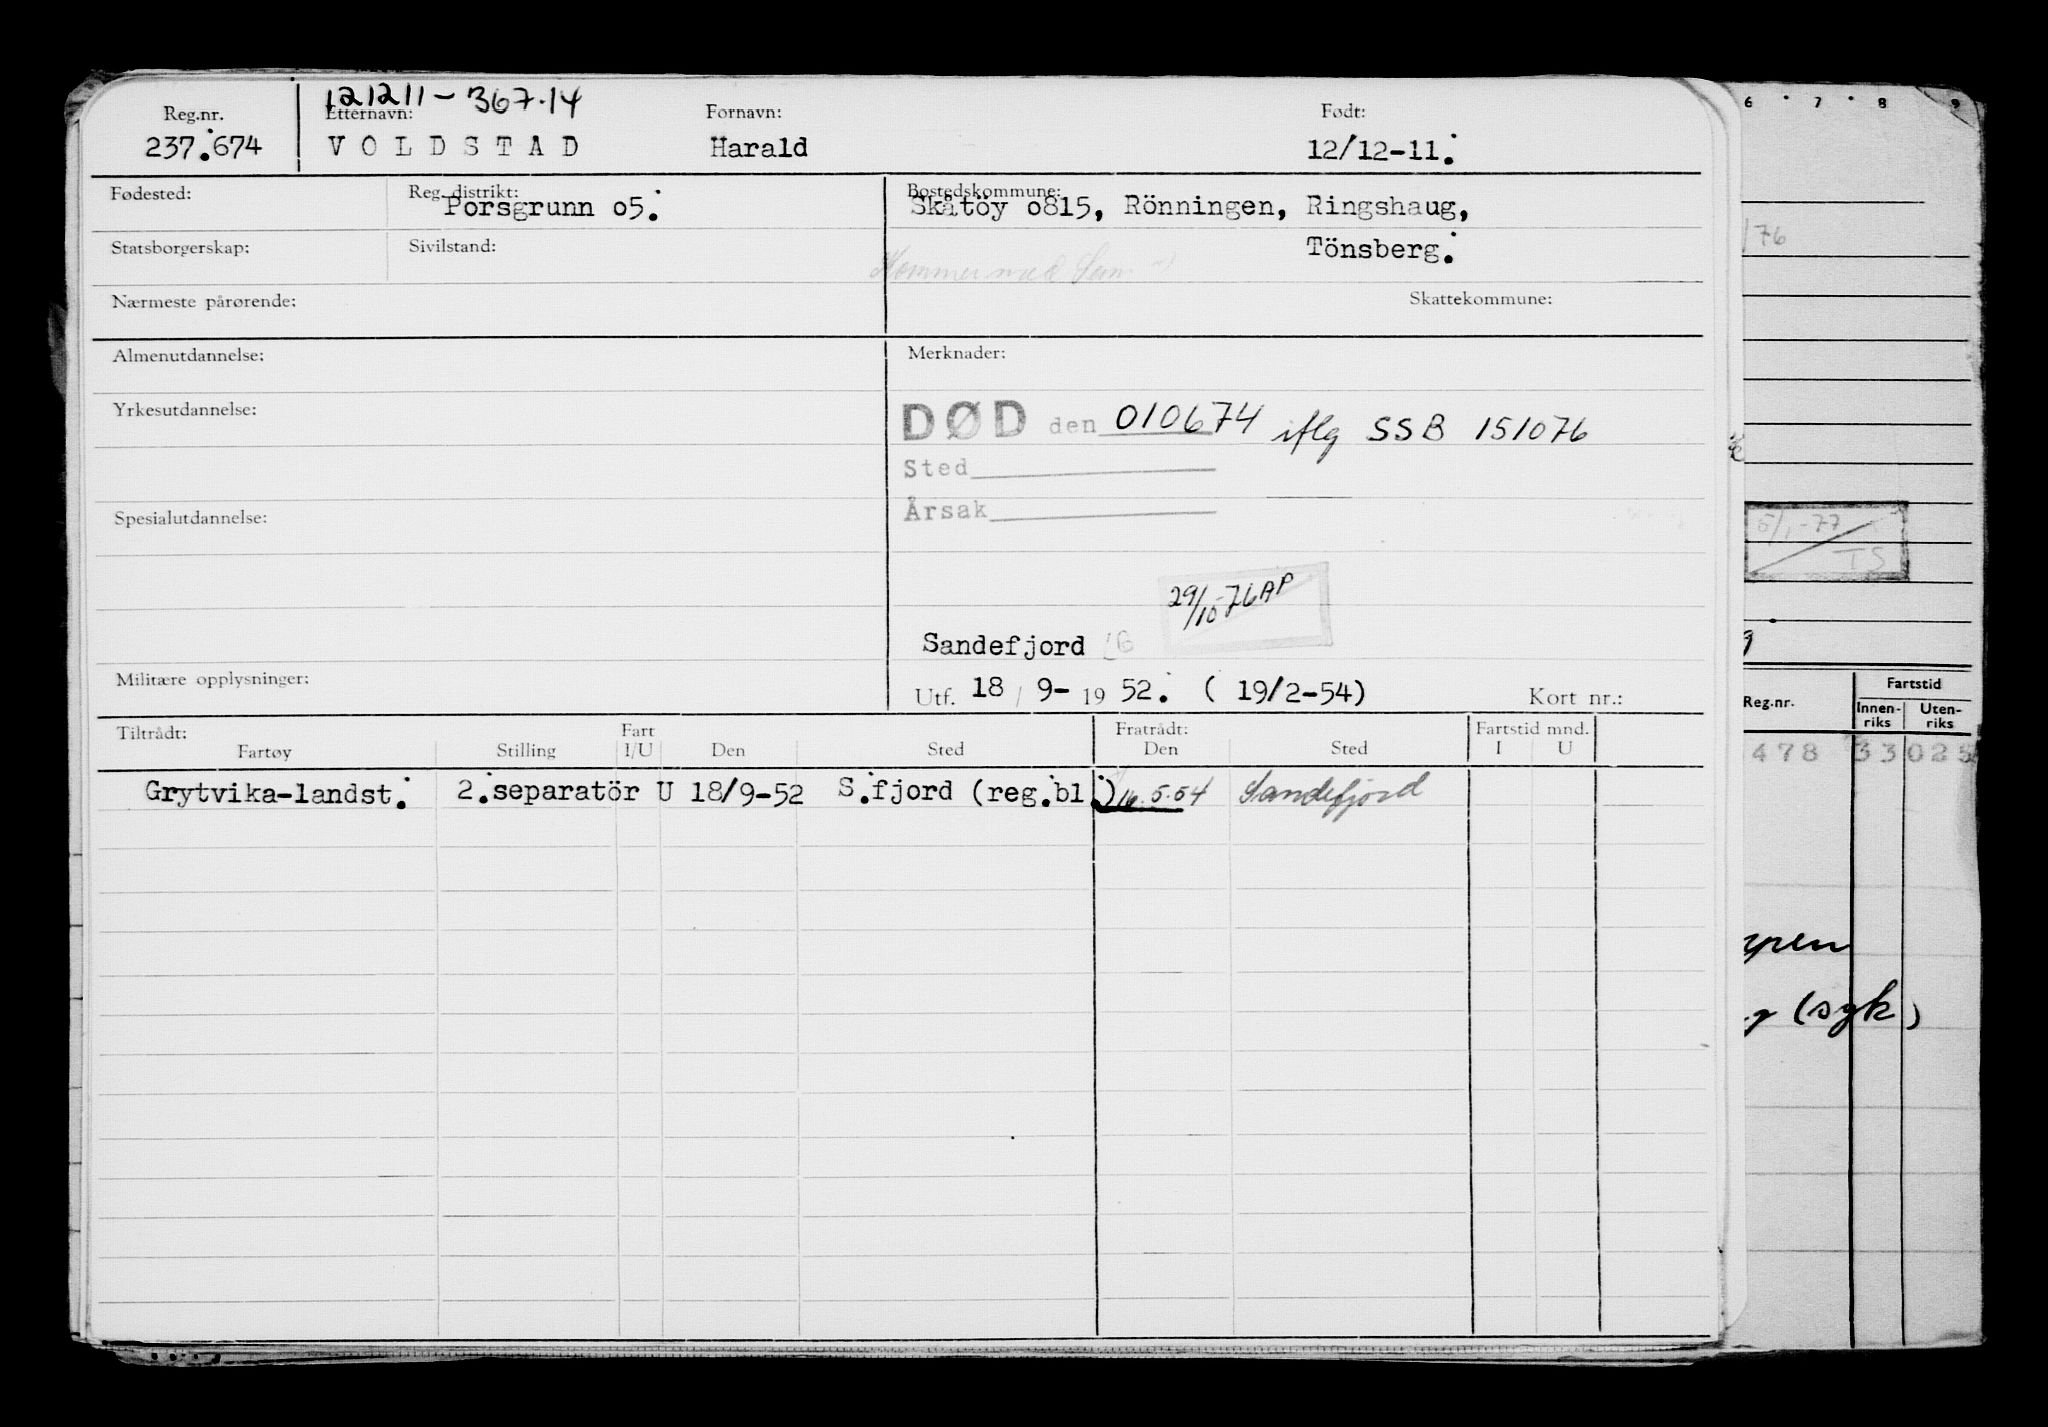 121211-367.14
Reg.nr. Etternavn: Fornavn: Født:
237.674 VOLDSTAD Harald 12/12-11.
Fødested: Reg. distrikt: Bostedskommune:
Porsgrunn o5. Skåtöy o815, Rönningen, Ringshaug,
Statsborgerskap: Sivilstand: Tönsberg.
Nærmeste pårørende: Skattekommune:
Almenutdannelse: Merknader:
Yrkesutdannelse: DØD den 010674 iflg SSB 151076
Sted
Spesialutdannelse: Årsak
29/10-76 AP
Sandefjord
Militære opplysninger: Utf. 18 / 9- 19 52. ( 19/2-54) Kort nr.:
Tiltrådt: Fart Fratrådt: Fartstid mnd.
Fartøy Stilling I/U Den Sted Den Sted I U
Grytvika-landst. 2.separatör U 18/9-52 S.fjord (reg.bl.) 16.5.54 Sandefjord
6 7 8 9
/76
5/1-77
TS
Reg.nr. Fartstid
Innen-riks Uten-riks
478 33 025
(syk)